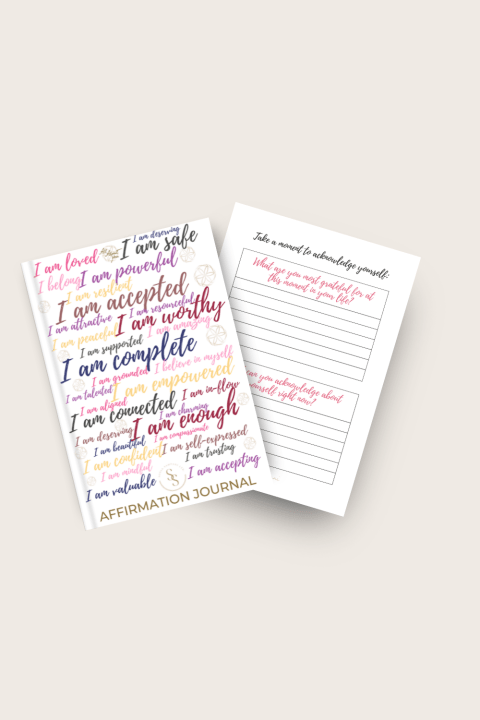 I am deserving
I am safe
I am loved
I am powerful
I belong
I am resilient
I am accepted
I am resourceful
I am attractive
I am worthy
I am peaceful
I am amazing
I am supported
I am complete
I believe in myself
I am grounded
I am empowered
I am talented
I am in-flow
I am aligned
I am connected
I am charming
I am enough
I am deserving
I am compassionate
I am beautiful
I am self-expressed
I am confident
I am trusting
I am mindful
I am accepting
I am valuable
SS
AFFIRMATION JOURNAL
Take a moment to acknowledge yourself:
What are you most grateful for at
this moment in your life?
an you acknowledge about
yourself right now?